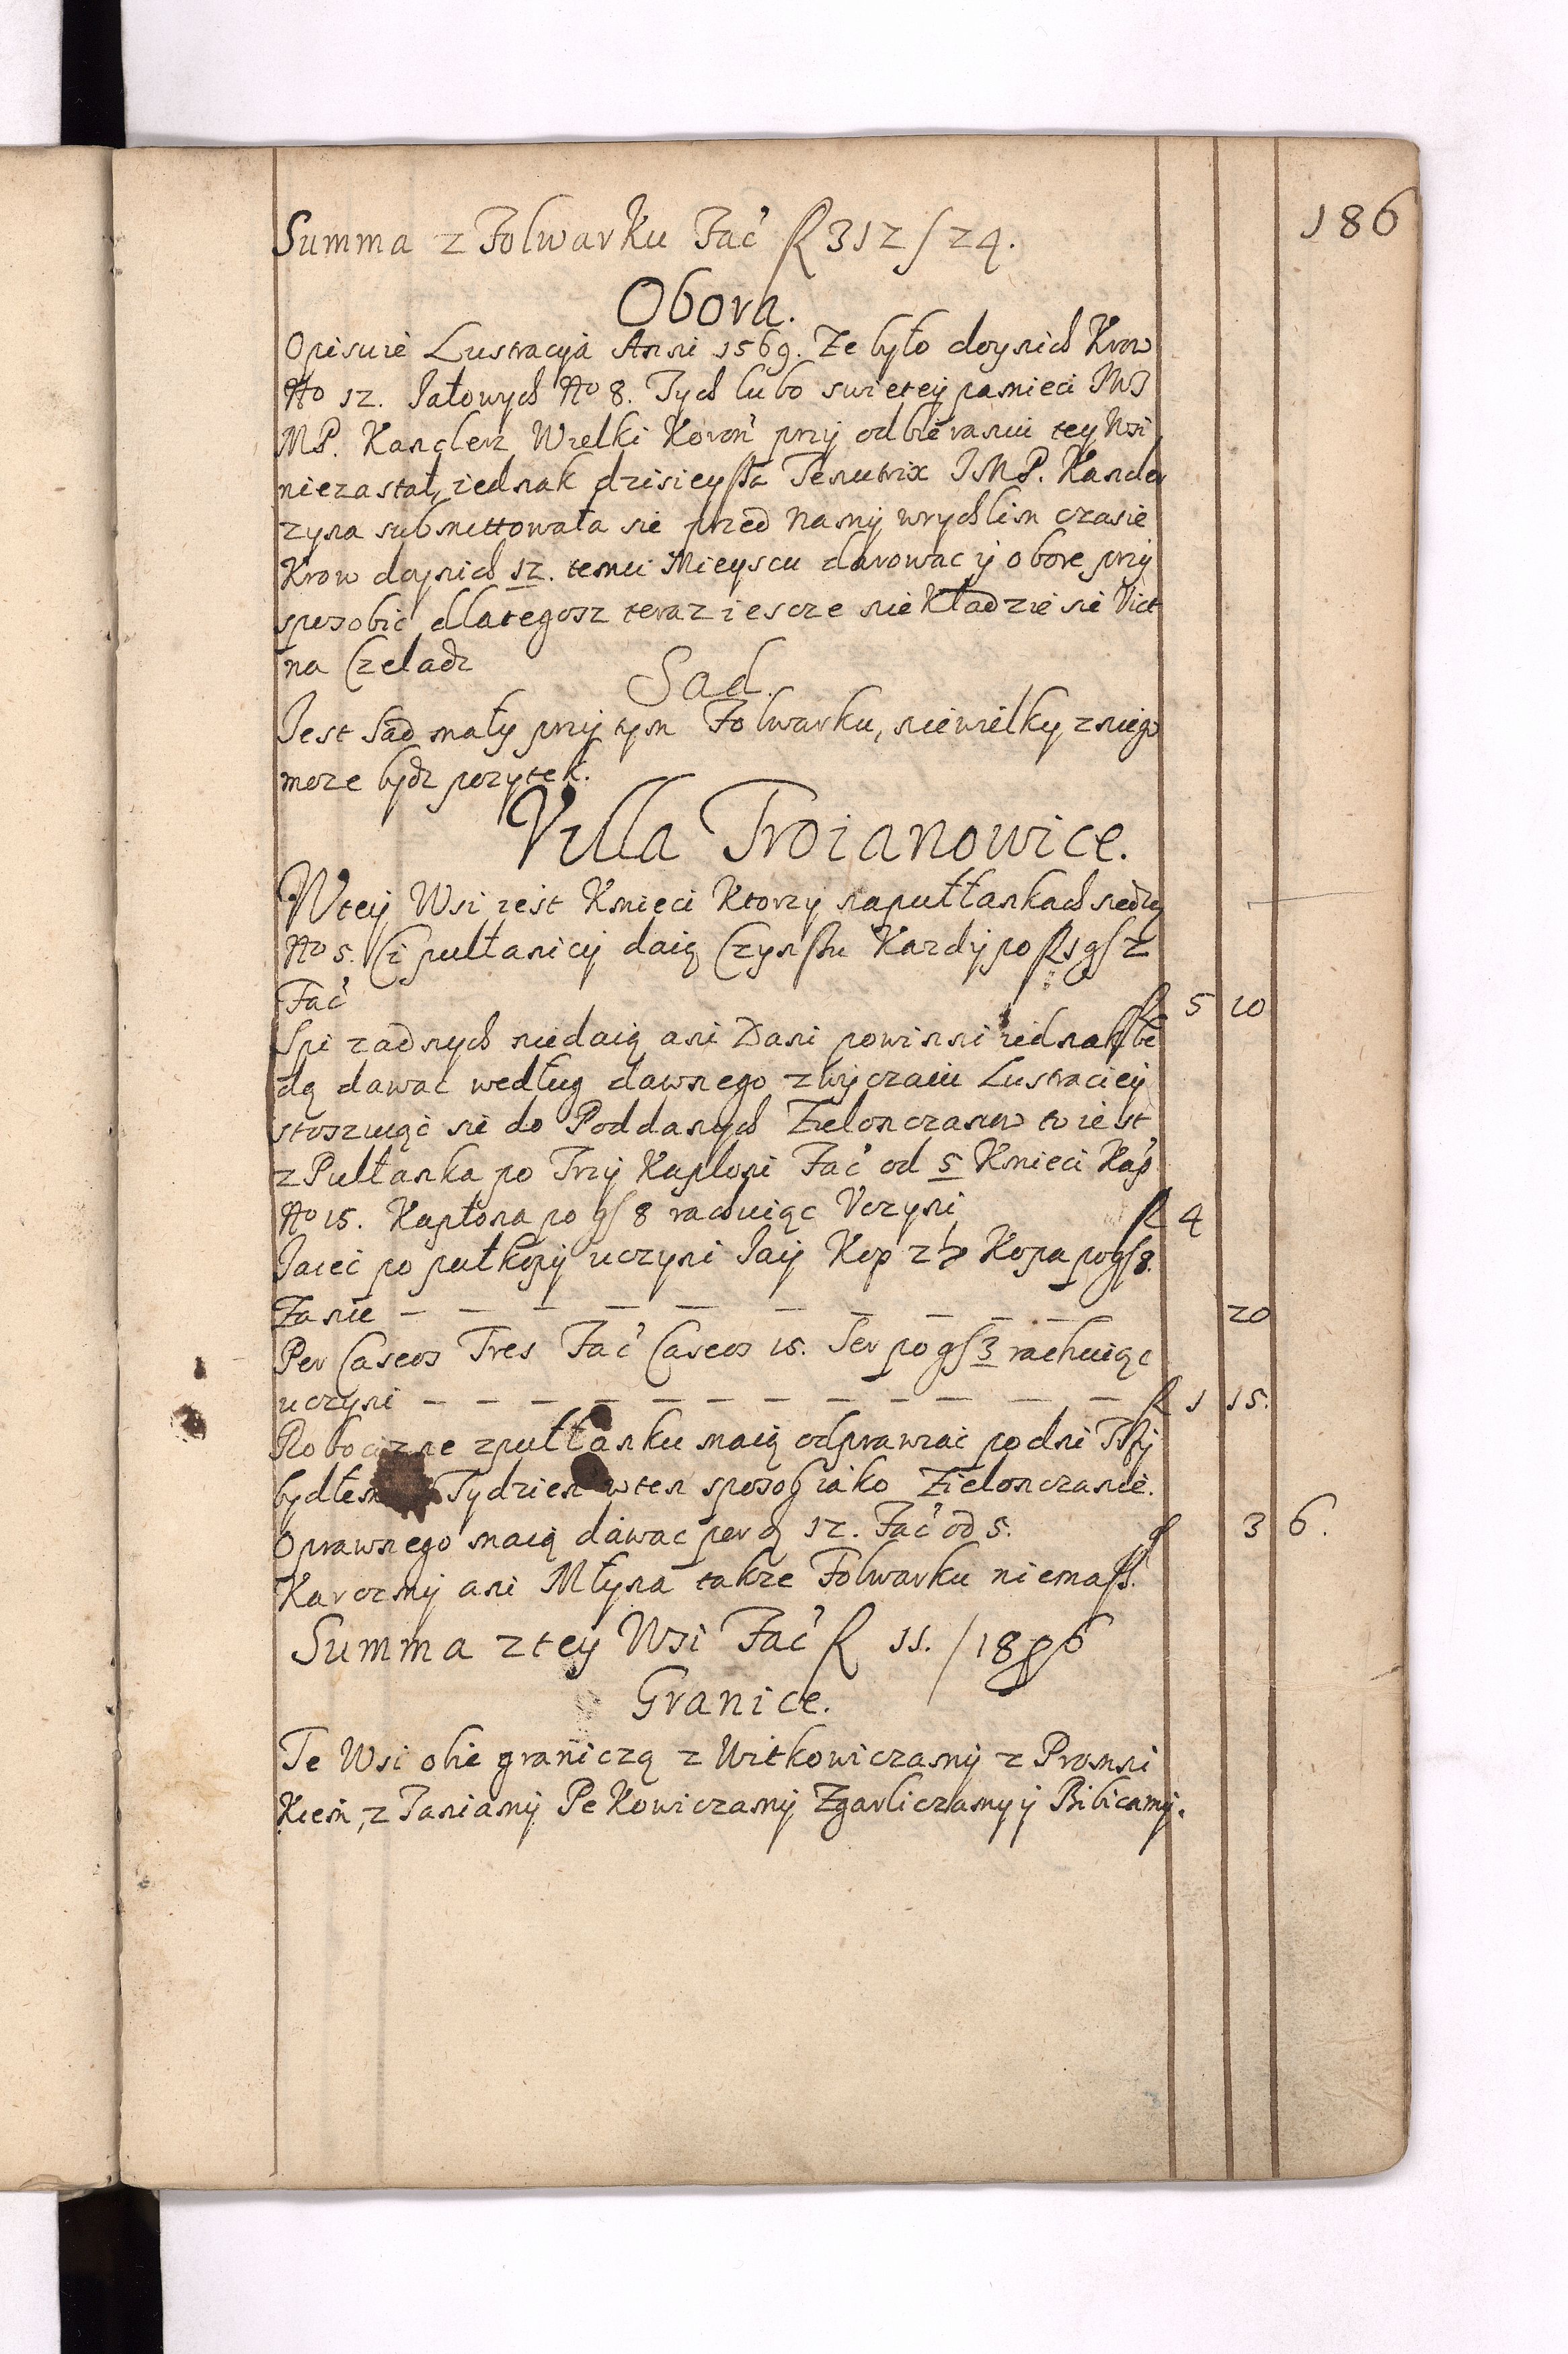 186
Summa z Folwarku Fać R 312 / 24.
Obora.
Opisuie Lustracyia Anni 1569. Ze było doynich Krow
No 12. Jałowych No 8. Tych lubo swietey pamieci JMJ
MP. Kanclerz Wielki Koroń przy odbieraniu tey Wsi
niezastał, iednak dzisieyssa Tenutrix JMP. Kancler
zyna submittowała sie przed Namy wrychlim czasie
Krow doynich 12. temu Mieyscu darowac y obore przy
sposobić dlategosz teraz iescze nie Kładzie sie Vict
na Czeladz
Sad.
Jest Sad mały przy tym Folwarku, niewielky z niego
moze bydz pozytek.
Villa Troianowice.
W tey Wsi iest Kmieci Ktorzy na pułłankach siedzą
No 5. Ci pułłanicy daią Czynssu Kazdy po R 1 g 2
Fać R 5 10
Spi zadnych niedaią ani Dani powinni iednak be
dą dawać według dawnego zwyczaiu Lustraciey
stosuiąć sie do Poddanych Zielonczanow to iest
z Pułłanka po Trzy Kapłoni Fać od 5 Kmieci Kap
No 15. Kapłona po g 8 rachuiąc Vczyni R 4
Jaiec po pułkopy uczyni Jay Kop 2½ Kopa po g 8.
Za nie — — — — — — — — — 20
Per Caseos Tres Fać Caseos 15. Ser po g 3 rachuiąc
uczyni — — — — — — — — — — — — R 1 15.
Robocizne z pułłanku maią odprawiać po dni Trzy
bydłem Tydzien w ten sposob iako Zielonczanie.
Oprawnego maią dawac per 12. Fać od 5. g 3 6.
Karczmy ani Młyna takze Folwarku niemass.
Summa z tey Wsi Fać R 11. / 18 6
Granice.
Te Wsi obie graniczą z Witkowiczamy z Promni
Kiem, z Taniamy Pekowiczamy Zgarliczamy y Bibicamy.